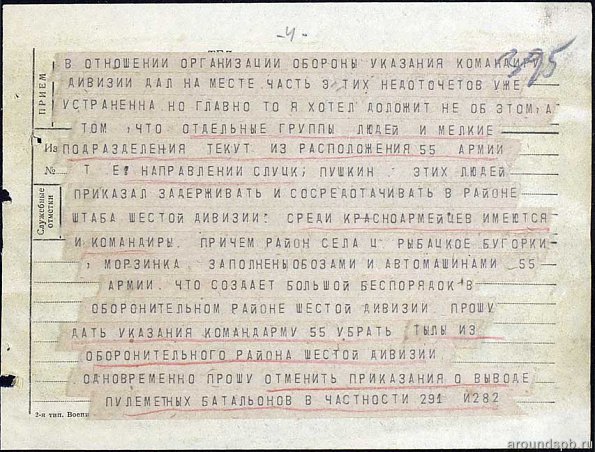 -4-
395
ТЕЛ
В ОТНОШЕНИИ ОРГАНИЗАЦИИ ОБОРОНЫ УКАЗАНИЯ КОМАНДИРУ
ДИВИЗИИ ДАЛ НА МЕСТЕ.ЧАСТЬ ЭТИХ НЕДОТОЧЕТОВ УЖЕ
УСТРАНЕННА.НО ГЛАВНО ТО Я ХОТЕЛ ДОЛОЖИТ НЕ ОБ ЭТОМ,А
ТОМ ,ЧТО ОТДЕЛЬНЫЕ ГРУППЫ ЛЮДЕЙ И МЕЛКИЕ
ПОДРАЗДЕЛЕНИЯ ТЕКУТ ИЗ РАСПОЛОЖЕНИЯ 55 АРМИИ
Т. Е. НАПРАВЛЕНИИ СЛУЦК, ПУШКИН . ЭТИХ ЛЮДЕЙ
ПРИКАЗАЛ ЗАДЕРЖИВАТЬ И СОСРЕДОТАЧИВАТЬ В РАЙОНЕ
ШТАБА ШЕСТОЙ ДИВИЗИИ. СРЕДИ КРАСНОАРМЕЙЦЕВ ИМЕЮТСЯ
И КОМАНДИРЫ. ПРИЧЕМ РАЙОН СЕЛА Ц. РЫБАЦКОЕ БУГОРКИ
, МОРЗИНКА ЗАПОЛНЕНЫОБОЗАМИ И АВТОМАШИНАМИ 55
АРМИИ. ЧТО СОЗДАЕТ БОЛЬШОЙ БЕСПОРЯДОК В
ОБОРОНИТЕЛЬНОМ РАЙОНЕ ШЕСТОЙ ДИВИЗИИ. ПРОШУ
ДАТЬ УКАЗАНИЯ КОМАНДАРМУ 55 УБРАТЬ ТЫЛЫ ИЗ
ОБОРОНИТЕЛЬНОГО РАЙОНА ШЕСТОЙ ДИВИЗИИ
ОДНОВРЕМЕННО ПРОШУ ОТМЕНИТЬ ПРИКАЗАНИЯ О ВЫВОДЕ
ПУЛЕМЕТНЫХ БАТАЛЬОНОВ В ЧАСТНОСТИ 291 И282
ПРИЕМ
Из
№
Служебные
отметки
2-я тип. Воени
aroundspb.ru